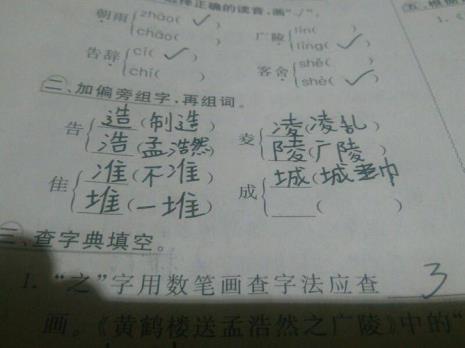 择正确的读音,画"✓"。
五、根据
朝雨 zhāo(✓) 广陵 lín( )
cháo( ) líng(✓)
告辞 cí(✓) 客舍 shě( )
chí( ) shè(✓)
二、加偏旁组字,再组词。
告 造(制造) 夌 凌(凌乱)
浩(孟浩然) 陵(广陵)
隹 准(不准) 成 城(城市)
堆(一堆) ( )
三、查字典填空。
1. “之”字用数笔画查字法应查 3
画。《黄鹤楼送孟浩然之广陵》中的“